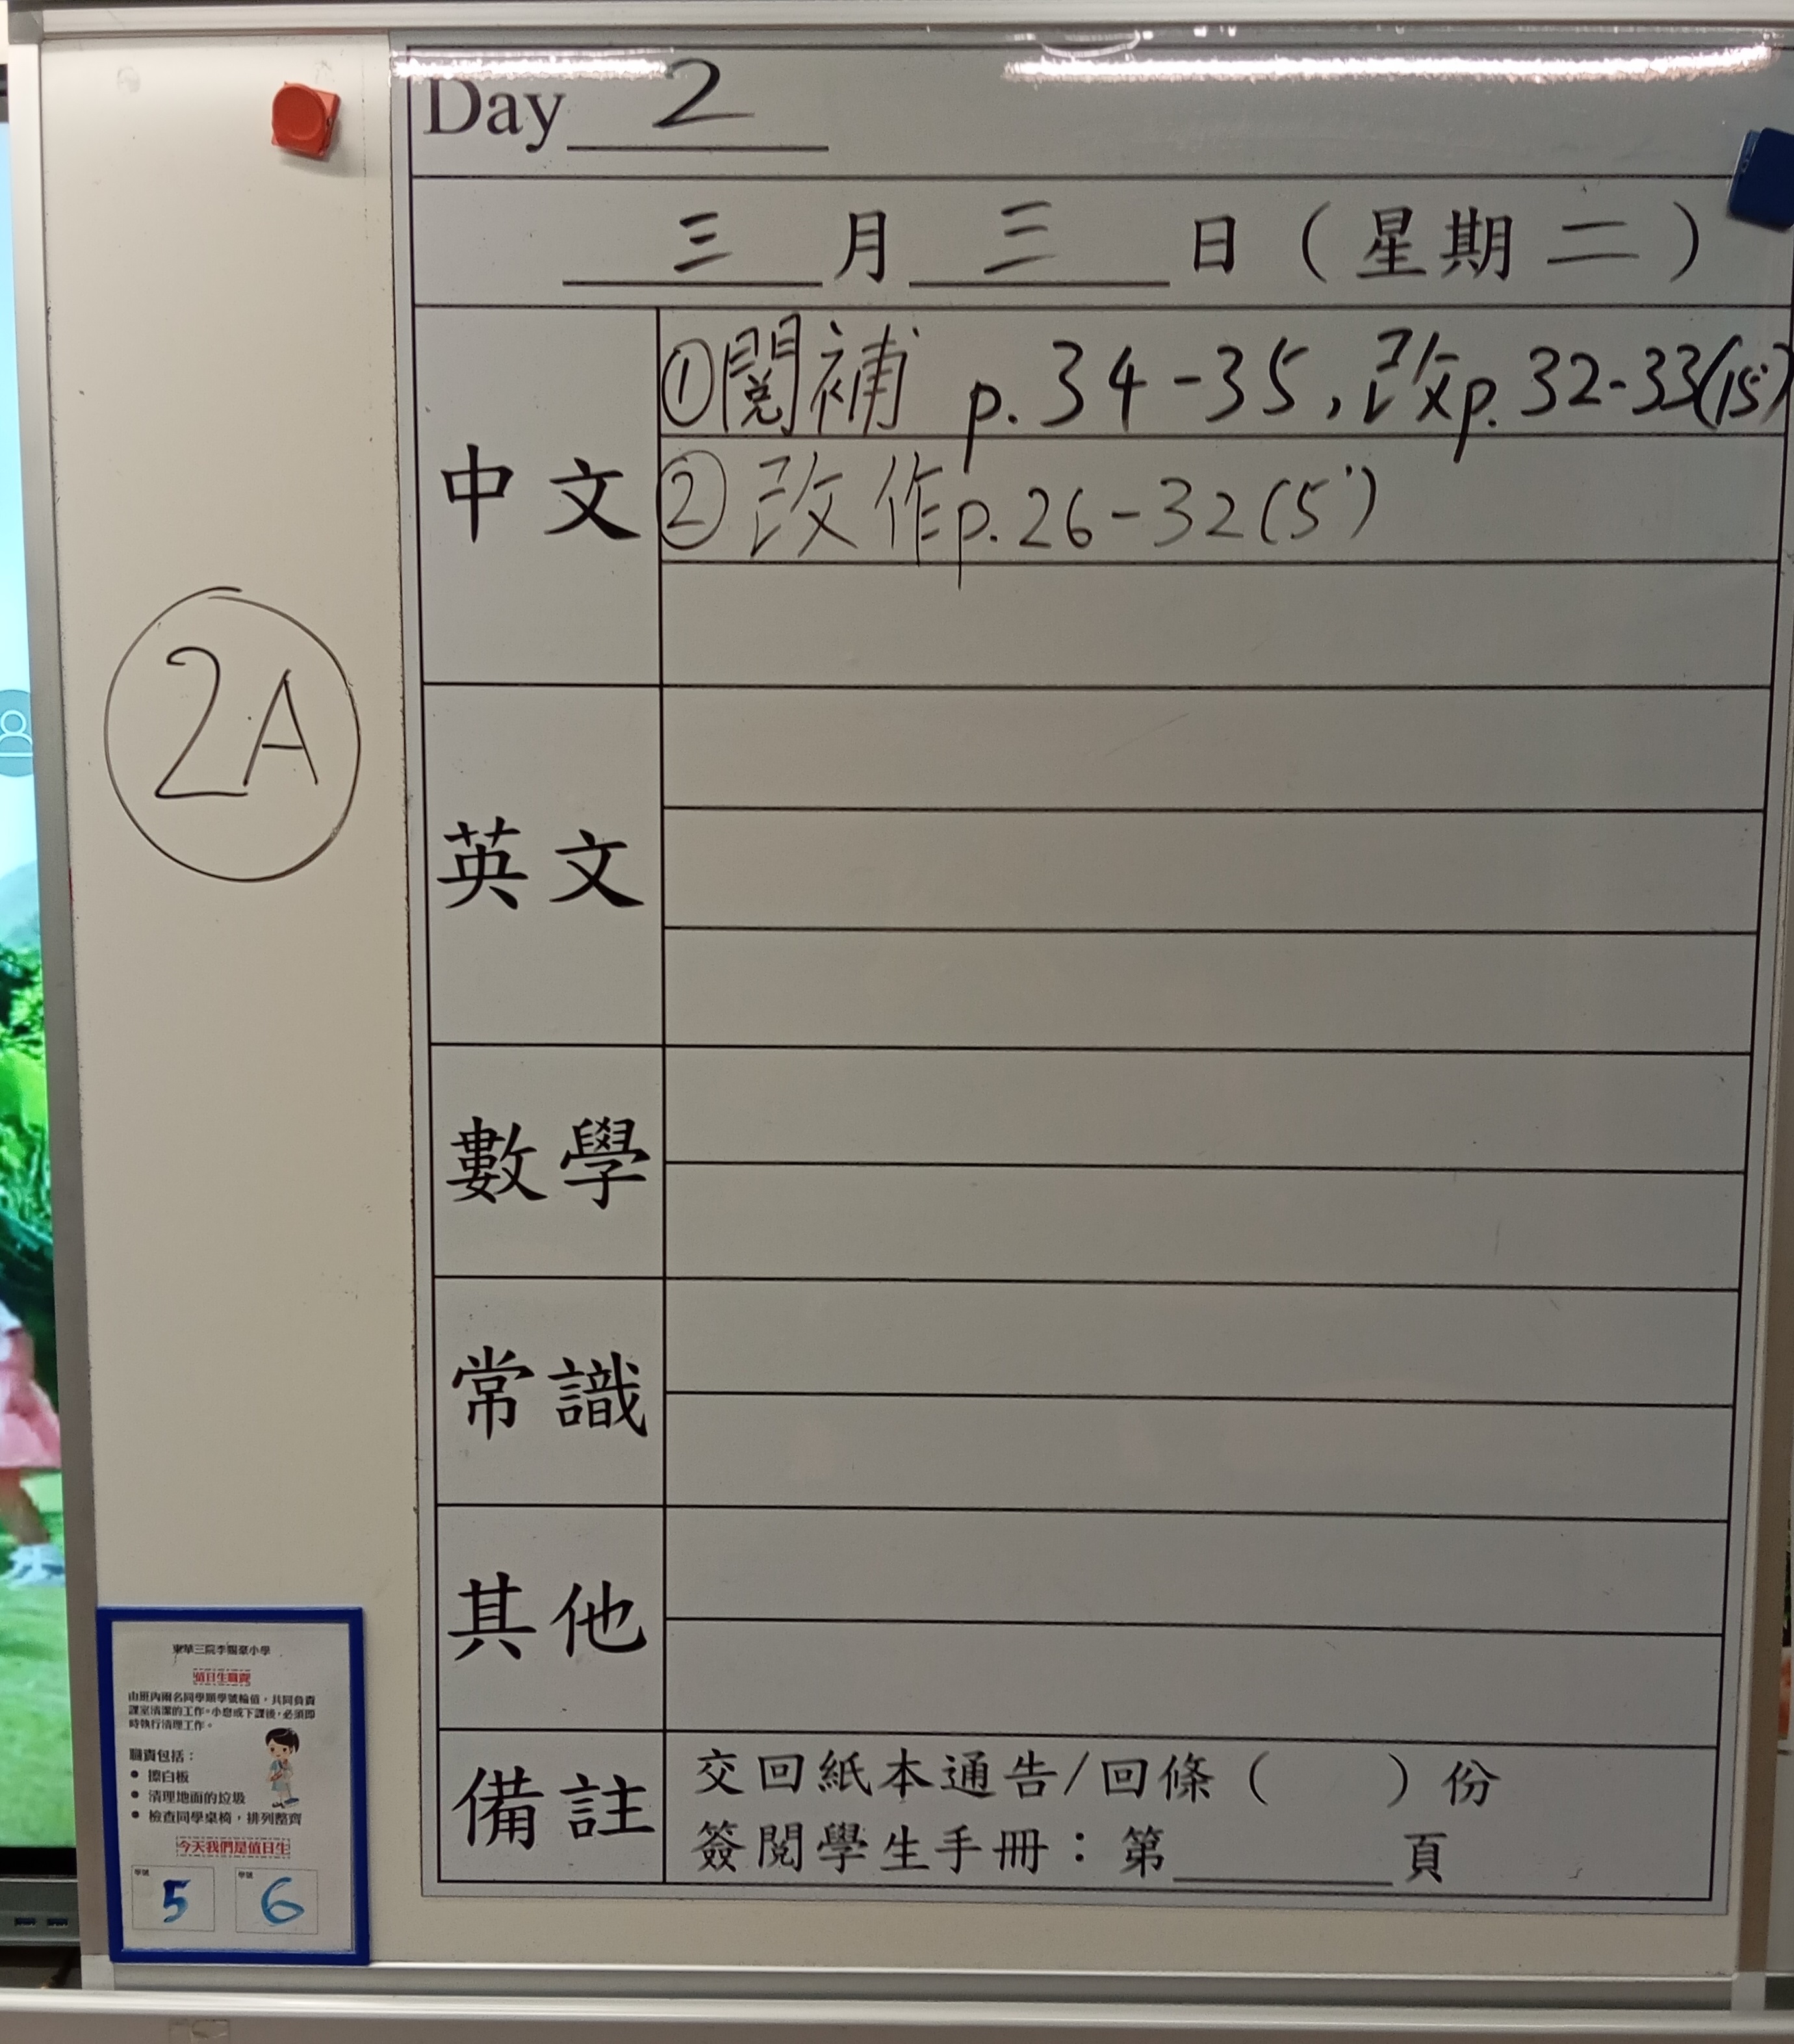 Day 2
三 月 三 日 ( 星期 二 )
中文
①閱補 p.34-35, 改p. 32-33(15')
②改作p.26-32(5')
2A
英文
數學
常識
其他
備註
交回紙本通告/回條 ( ) 份
簽閱學生手冊：第 頁
東華三院李賜豪小學
值日生職責
由班內兩名同學順學號輪值，共同負責
課室清潔的工作。小息或下課後，必須即
時執行清理工作。
職責包括：
• 擦白板
• 清理地面的垃圾
• 檢查同學桌椅，排列整齊
今天我們是值日生
學號 學號
5 6